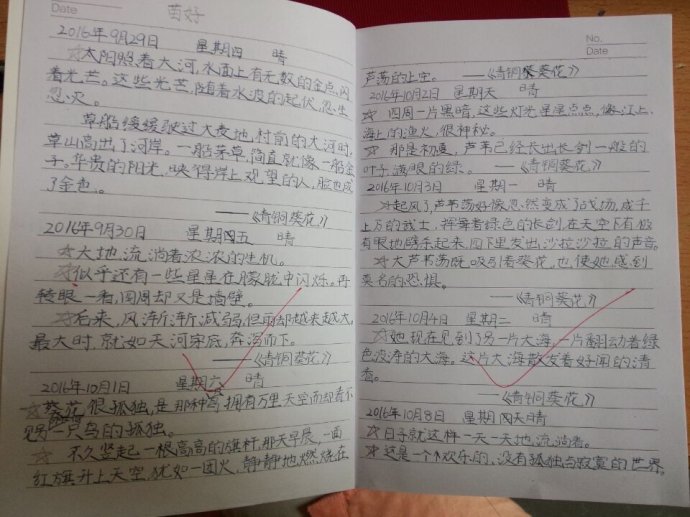 Date
苗好
2016年9月29日 星期四 晴
☆太阳照着大河,水面上有无数的金点,闪
着光芒。这些光芒,随着水波的起伏,忽生
忽灭。
草船缓缓驶过大麦地,村前的大河时,
草山高出了河岸。一船茅草,简直就像一船金
子。华贵的阳光,映得岸上观望的人,脸也成
了金色。
——《青铜葵花》
2016年9月30日 星期四五 晴
☆大地流淌着浓浓的生机。
☆似乎还有一些星星在朦胧中闪烁。再
转眼一看,四周却又是墙壁。
☆后来,风渐渐减弱,但雨却越来越大,
最大时,就如天河穿底,奔泻而下。
——《青铜葵花》
2016年10月1日 星期六 晴
☆葵花很孤独,是那种鸟拥有万里天空而却看不
见另一只鸟的孤独。
不久竖起一根高高的旗杆,那天早晨,一面
红旗升上天空,犹如一团火,静静地燃烧在
No.
Date
芦荡的上空。 ——《青铜葵花》
2016年10月2日 星期天 晴
☆四周一片黑暗,这些灯光星星点点,像江上、
海上的渔火,很神秘。
☆那是初夏,芦苇已经长出长剑一般的
叶子,满眼的绿。 ——《青铜葵花》
2016年10月3日 星期一 晴
☆起风了,芦苇荡好像忽然变成了战场,成千
上万的武士,挥舞着绿色的长剑,在天空下有板
有眼地劈杀起来,四下里发出沙拉沙拉的声音。
☆大芦苇荡既吸引着葵花,也使她感到
莫名的恐惧。
——《青铜葵花》
2016年10月4日 星期二 晴
☆她现在见到了另一片大海,一片翻动着绿
色波涛的大海。这片大海散发着好闻的清
香。
——《青铜葵花》
2016年10月8日 星期六 晴
☆日子就这样一天一天地流淌着。
☆这是一个欢乐的,没有孤独与寂寞的世界。